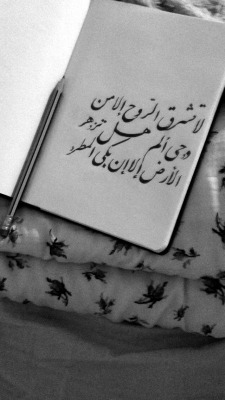 لا تشرق الروح إلا من
دجى ألم هل تزهر
الأرض إلا إن بكى المطر